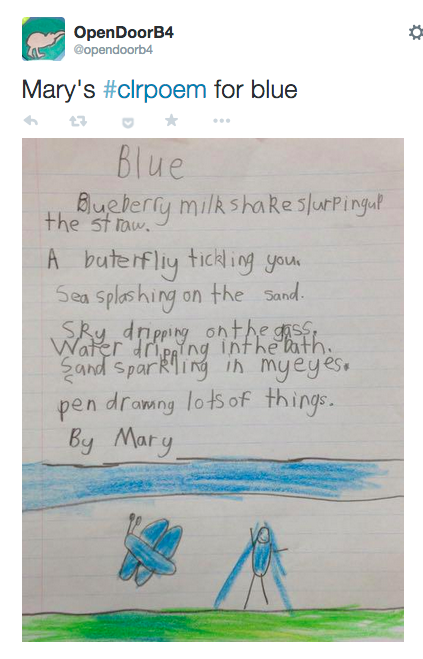 OpenDoorB4
@opendoorb4
Mary's #clrpoem for blue
Blue
Blueberry milkshake slurpingup
the straw.
A buterfliy tickling you.
Sea splashing on the sand.
Sky dripping onthe gass.
Water dripping inthe bath.
Sand sparkling in myeyes.
pen drawing lotsof things.
By Mary